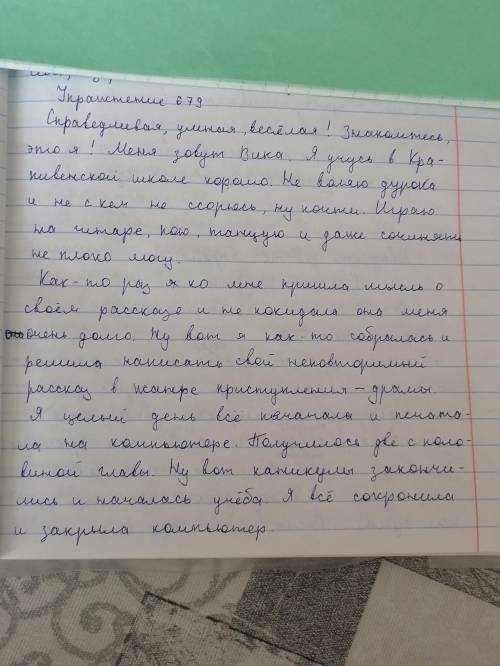 Упражнение 679
Справедливая, умная, весёлая! Знакомтесь,
это я! Меня зовут Вика. Я учусь в Кра-
пивенской школе хорошо. Не валяю дурака
и не с кем не ссорюсь, ну почти. Играю
на гитаре, пою, танцую и даже сочинять
не плохо могу.
Как-то раз ко мне пришла мысль о
своём рассказе и не покидала она меня
очень долго. Ну вот я как-то собралась и
решила написать свой неповторимый
рассказ в жанре приступления - драмы.
Я целый день всё печатала и печата-
ла на компьютере. Получилось две с поло-
виной главы. Ну вот каникулы закончи-
лись и началась учёба. Я всё сохронила
и закрыла компьютер